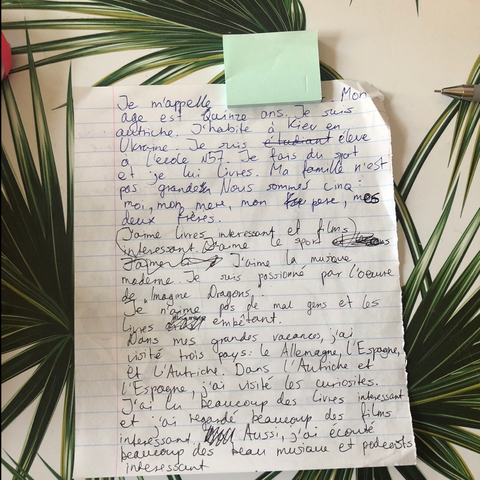 Je m'appelle . Mon
âge est Quinze ans. Je suis
autriche. J'habite à Kiev en
Ukraine. Je suis étudiant éleve
a l'ecole №57. Je fais du spot
et je lui livres. Ma famille n'est
pas grande. Nous sommes cinq:
moi, mon mere, mon pere, mes
deux frères.
J'aime livres interessant et films
interessant. J'aime le sport
J'aime J'aime la musique
moderne. Je suis passionné par l'oeuvre
de Imagine Dragons.
Je n'aime pas de mal gens et les
livres embêtant.
Dans mes grandes vacances, j'ai
visité trois pays: le Allemagne, l'Espagne,
et l'Autriche. Dans l'Autriche et
l'Espagne, j'ai visité les curiosites.
J'ai lu beaucoup des livres interessant
et j'ai regardé beaucoup des films
interessant. Aussi, j'ai écouté
beaucoup des beau musique et podcasts
interessant